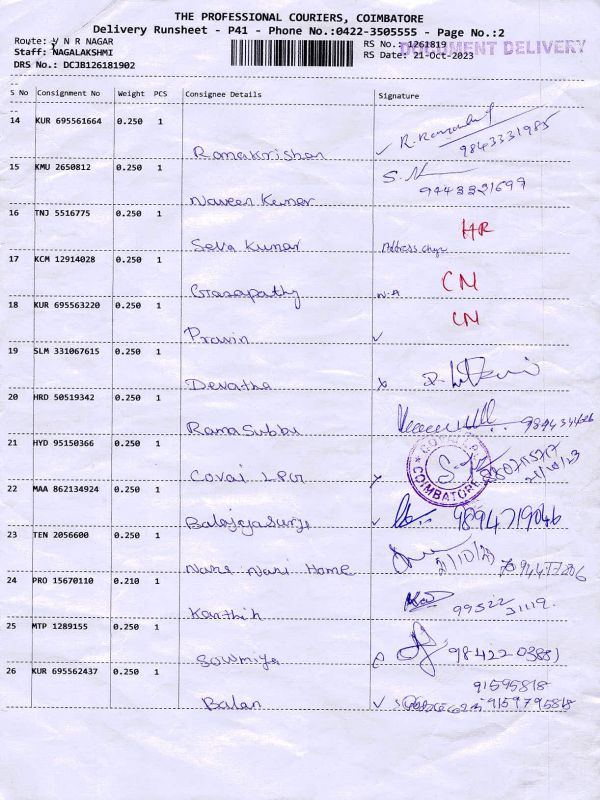 THE PROFESSIONAL COURIERS, COIMBATORE
Delivery Runsheet - P41 - Phone No.:0422-3505555 - Page No.:2
Route: V N R NAGAR
RS No.: 1261819
DOCUMENT DELIVERY
Staff: NAGALAKSHMI
RS Date: 21-Oct-2023
DRS No.: DCJB126181902
S No Consignment No Weight PCS Consignee Details Signature
14 KUR 695561664 0.250 1
Ramakrishan 9843331985
15 KMU 2650812 0.250 1
Naveen Kumar
16 TNJ 5516775 0.250 1
Selva Kumar HR
17 KCM 12914028 0.250 1
N.A CN
18 KUR 695563220 0.250 1
Pravin CN
19 SLM 331067615 0.250 1
Devatha
20 HRD 50519342 0.250 1
Rama Subbu
21 HYD 95150366 0.250 1
Covai LPG COIMBATORE 21/10/23
22 MAA 862134924 0.250 1
9894719046
23 TEN 2056600 0.250 1
Nari Nari Home 21/10/23
24 PRO 15670110 0.210 1
Karthik 99522 31119.
25 MTP 1289155 0.250 1
Sowmiya
26 KUR 695562437 0.250 1
91595818
Balan 9159795818